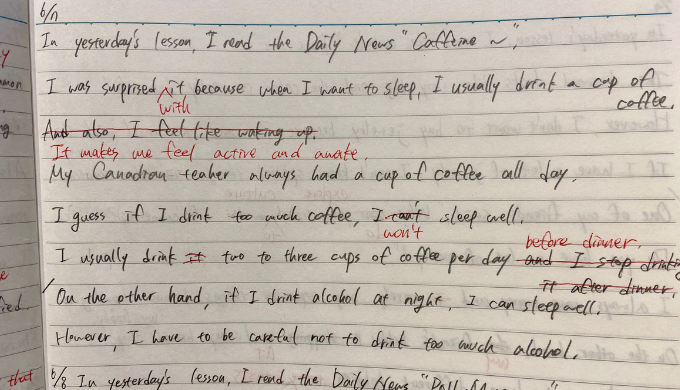 6/7
In yesterday's lesson, I read the Daily News "Caffeine ~".
I was surprised it because when I want to sleep, I usually drink a cup of
with
coffee.
And also, I feel like waking up.
It makes me feel active and awake.
My Canadian teaher always had a cup of coffee all day.
I guess if I drink too much coffee, I can't sleep well.
won't
before dinner.
I usually drink it two to three cups of coffee per day and I stop drinking
it after dinner.
On the other hand, if I drink alcohol at night, I can sleep well.
However, I have to be careful not to drink too much alcohol.
that
6/8 In yesterday's lesson, I read the Daily News